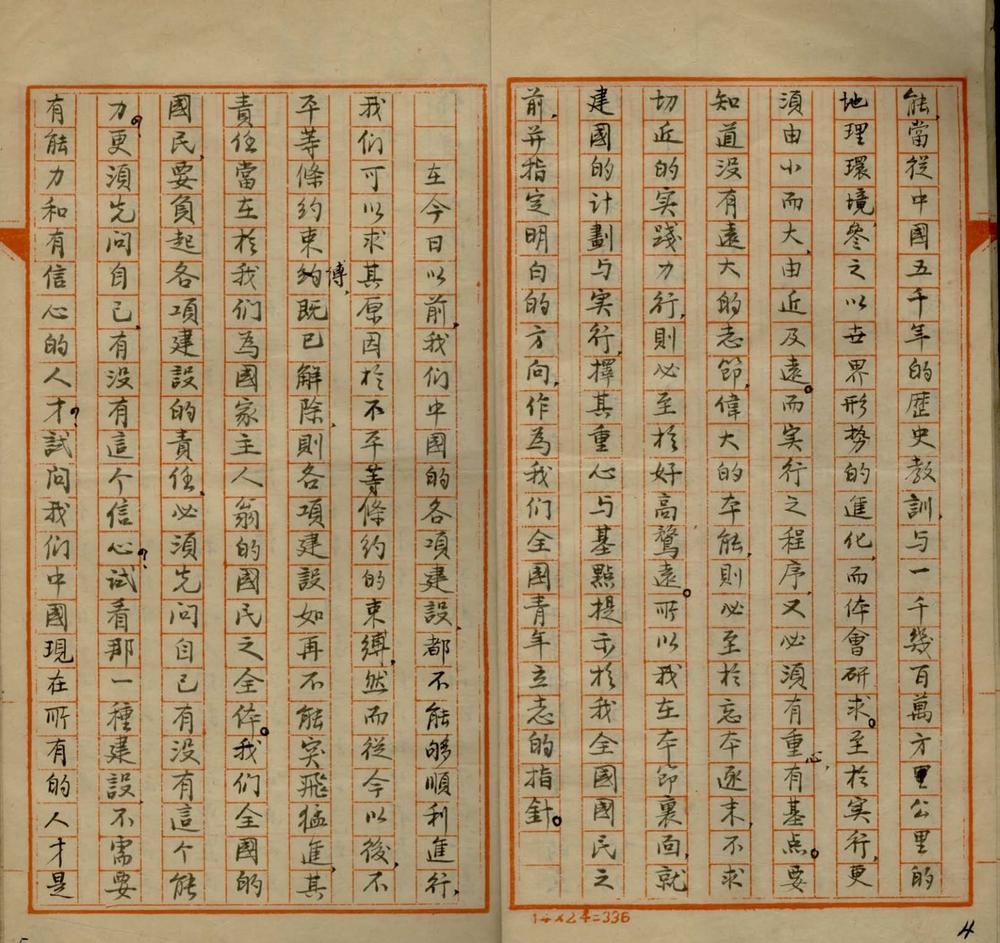 能,當從中國五千年的歷史教訓,与一千幾百萬方里公里的
地理環境,參之以世界形势的進化,而体會研求。至於实行,更
須由小而大,由近及遠。而实行之程序,又必須有重心,有基点。要
知道没有遠大的志節,偉大的本能,則必至於忘本逐末,不求
切近的实踐力行,則必至於好高鶩遠。所以我在本節裏面,就
建國的计劃与实行,擇其重心与基點提示於我全國國民之
前,并指定明白的方向,作為我们全國青年立志的指針。
在今日以前,我们中國的各項建設,都不能够順利進行,
我们可以求其原因於不平等條约的束縛,然而從今以後,不
平等條约束縛,既已解除,則各項建設如再不能突飛猛進,其
責任當在於我们為國家主人翁的國民之全体。我们全國的
國民,要負起各項建設的責任,必須先问自己有没有這个能
力?更須先问自己,有没有這个信心?试看那一種建設,不需要
有能力和有信心的人才?試问我们中國現在所有的人才是
14×24=336
4